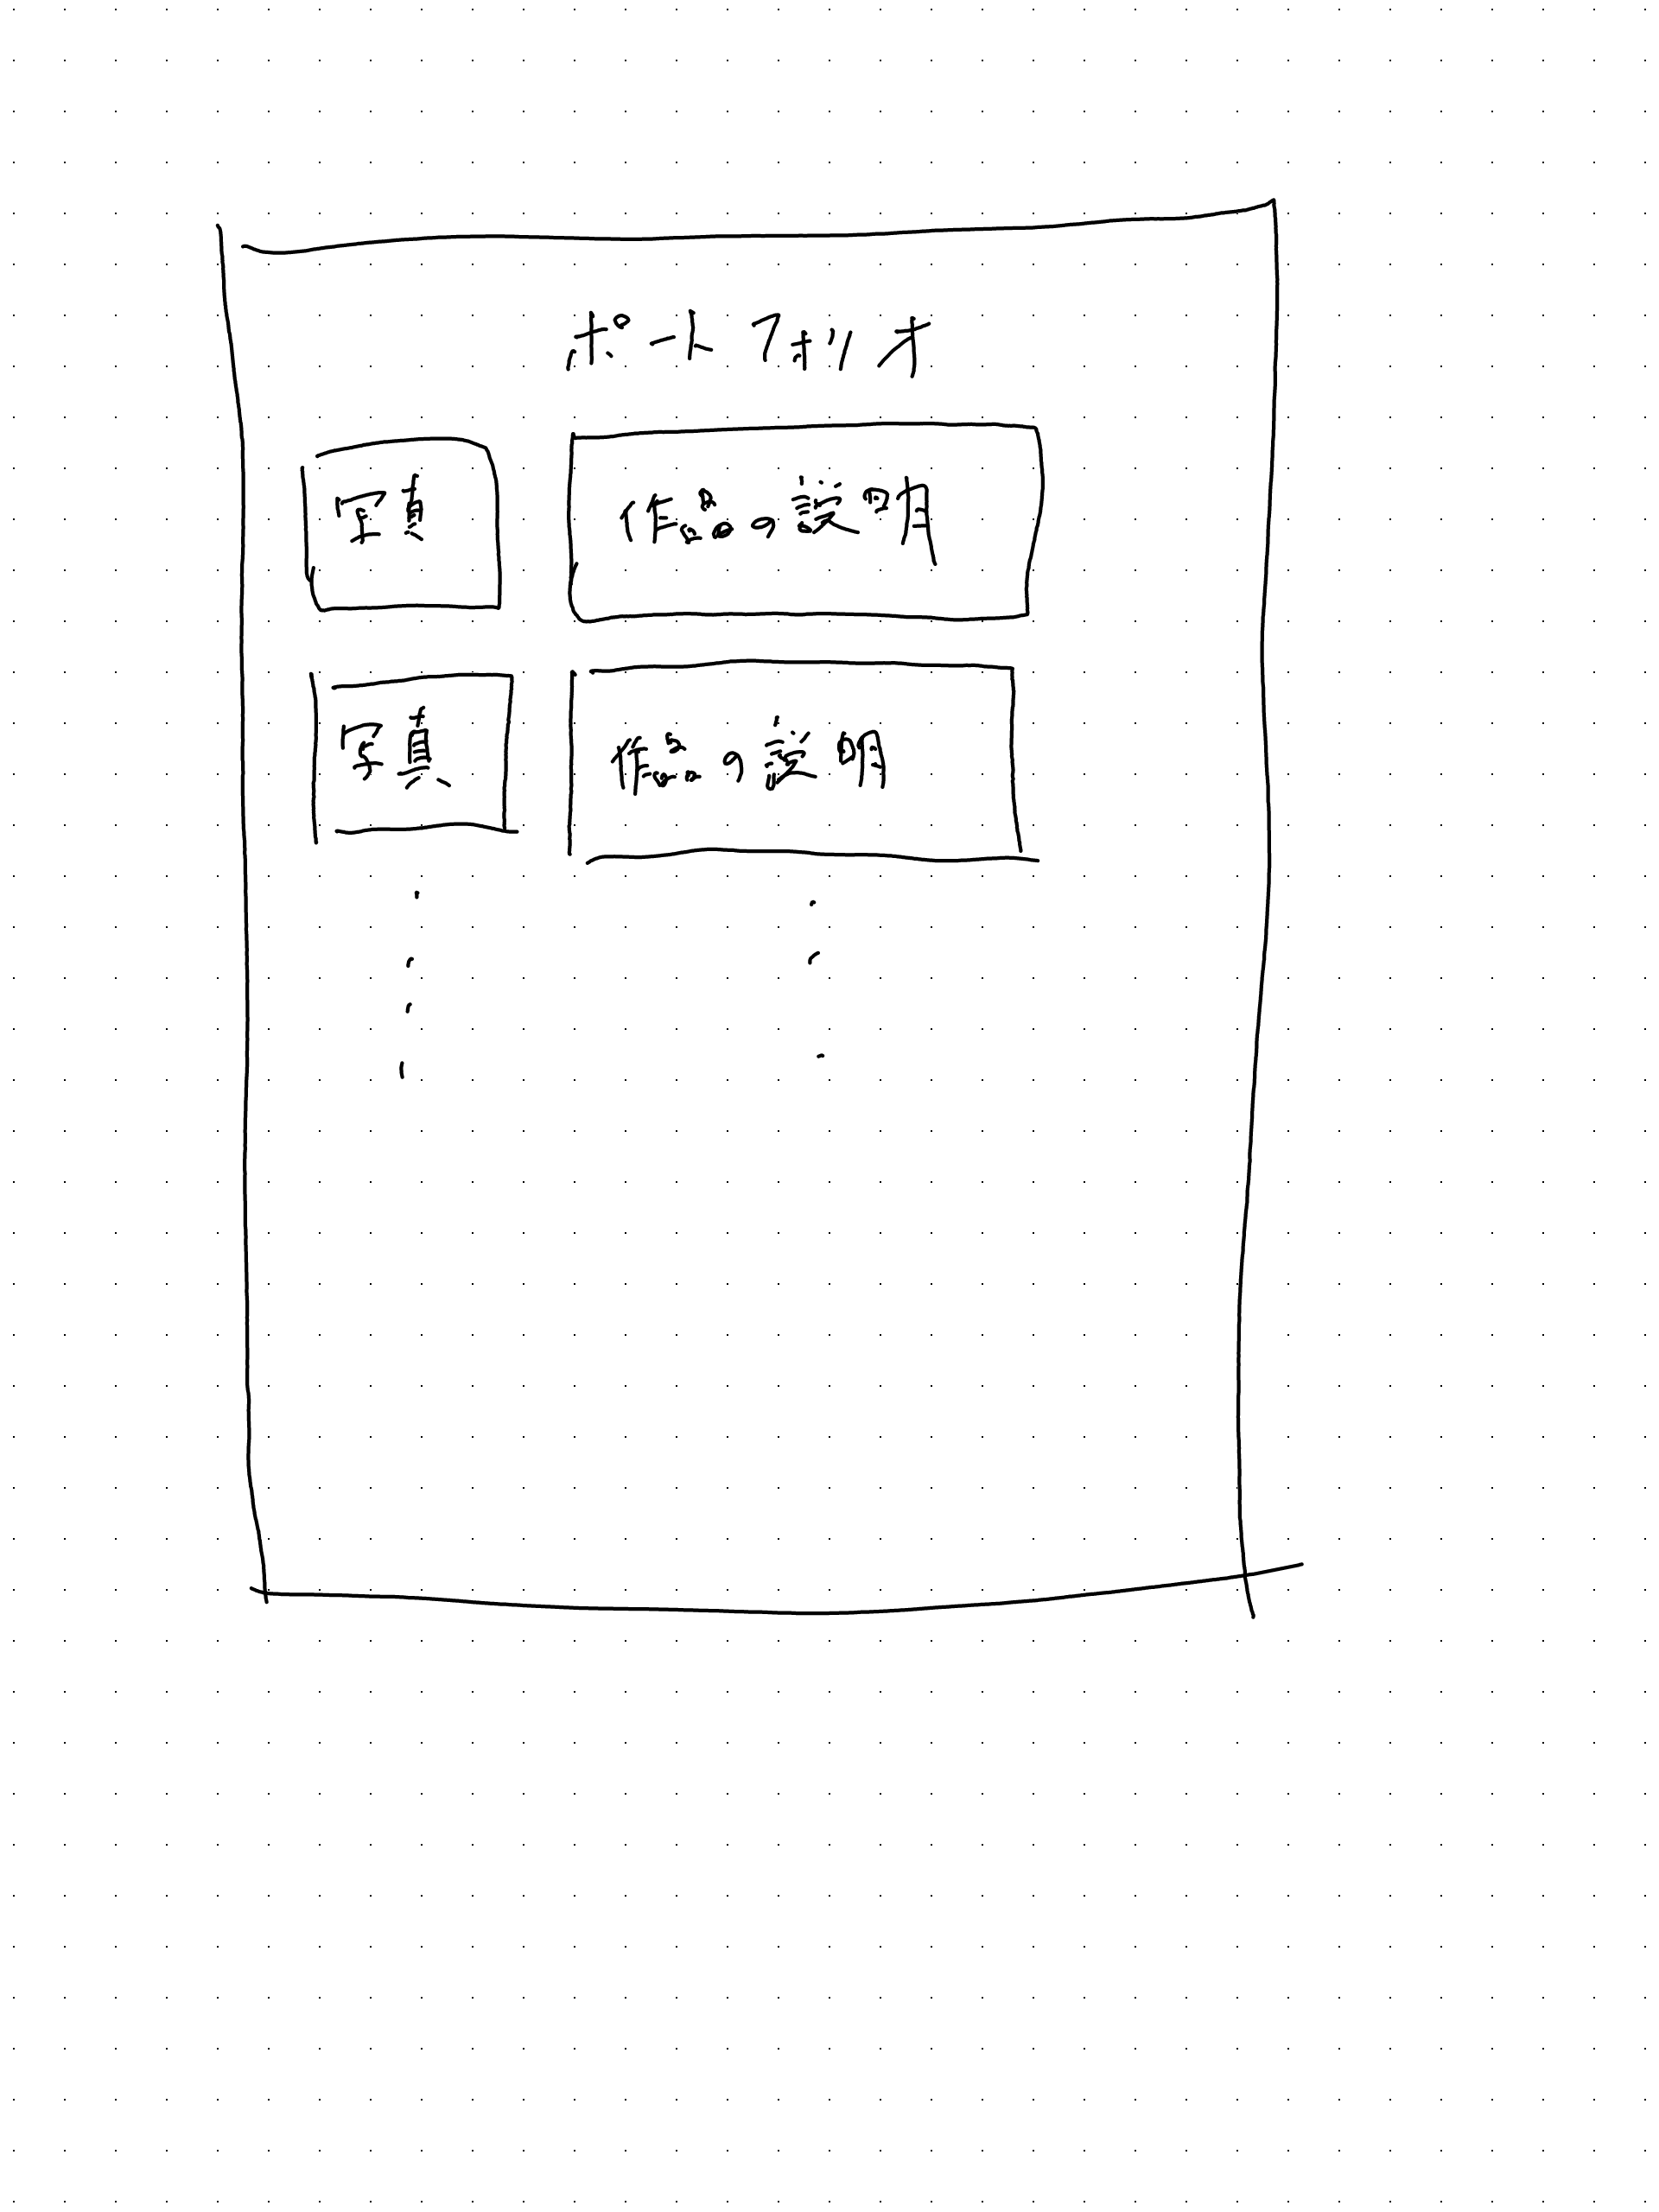 ポートフォリオ
写真 作品の説明
写真 作品の説明